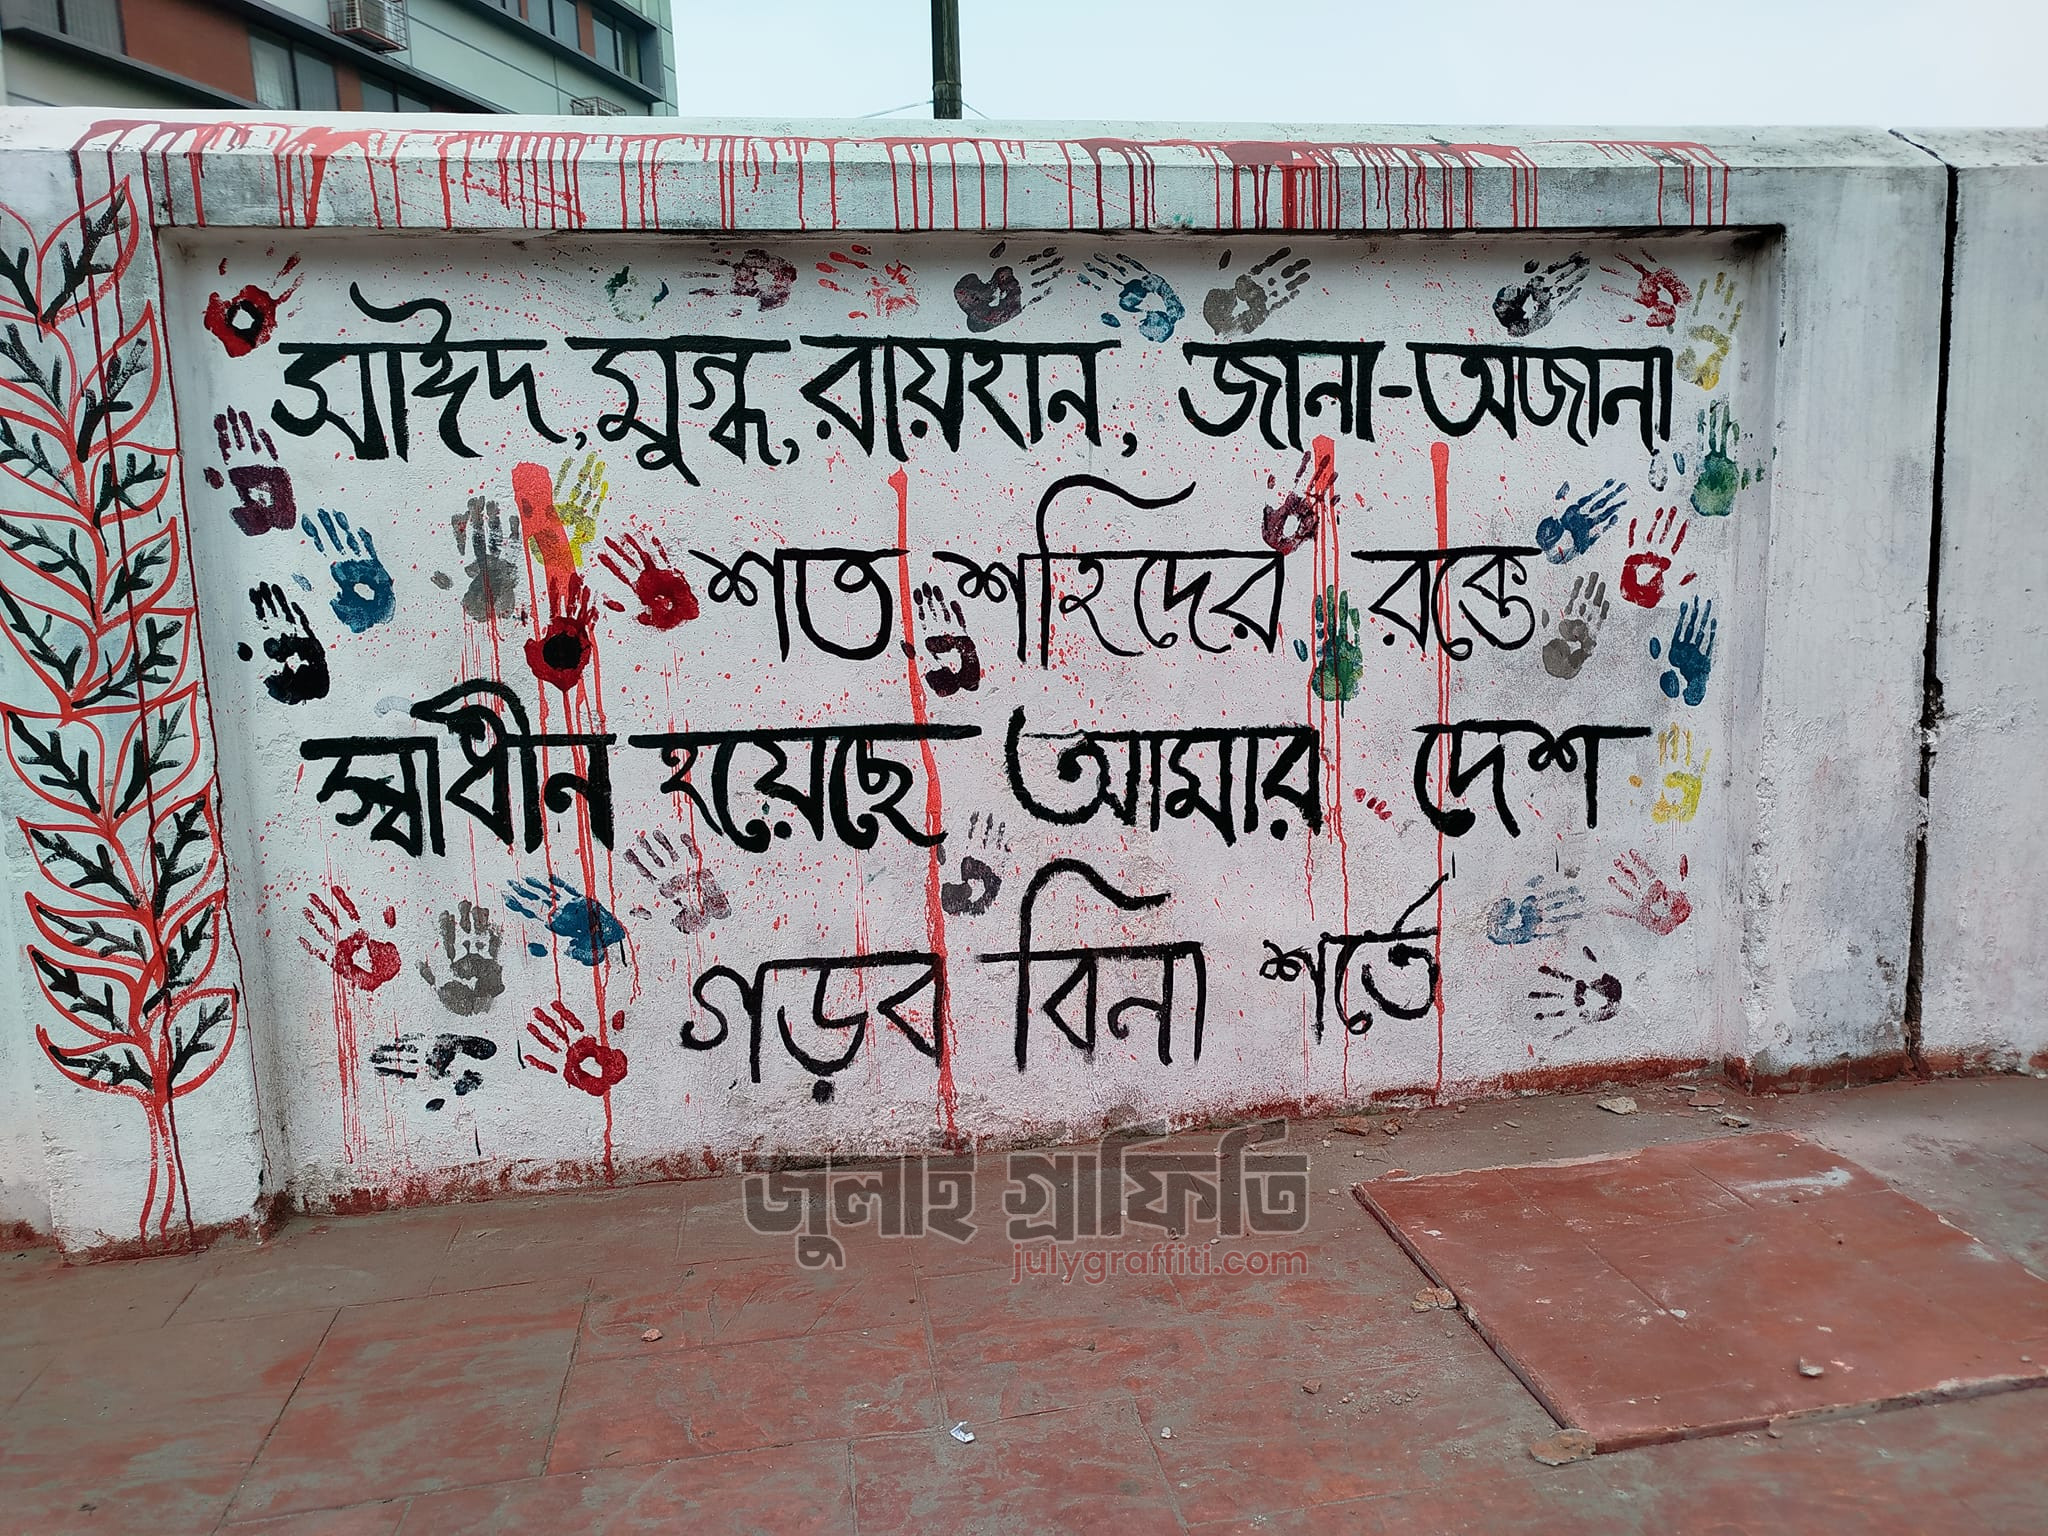 সাঈদ, মুগ্ধ, রায়হান, জানা-অজানা
শত শহিদের রক্তে
স্বাধীন হয়েছে আমার দেশ
গড়ব বিনা শর্তে
জুলাই গ্রাফিতি
julygraffiti.com